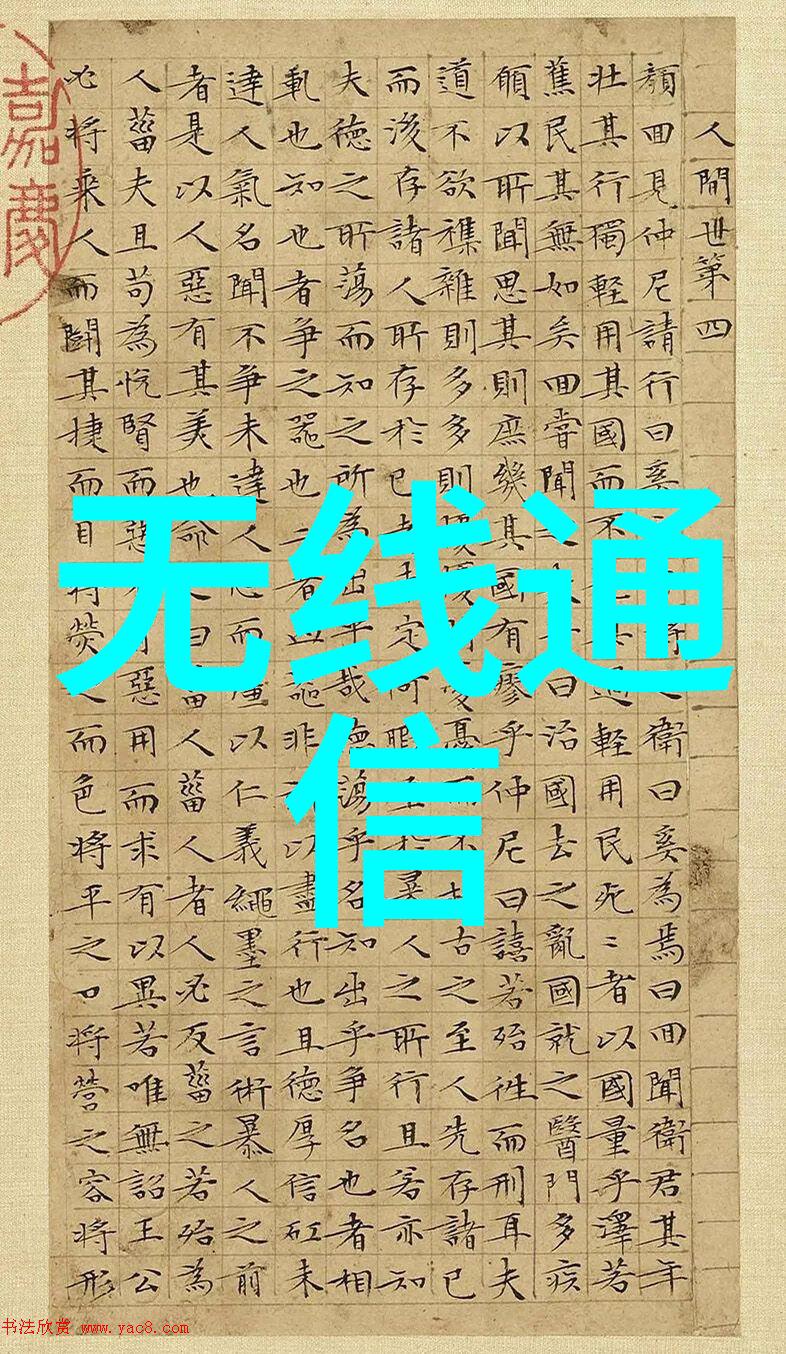 人間世第四
顏囬見仲尼請行曰奚將之衛曰奚為焉曰囬聞衛君其年
壯其行獨輕用其國而不其過輕用民死〻者以國量乎澤若
蕉民其無如矣囬甞聞曰治國去之亂國就之醫門多疾
願以所聞思其則庶幾其國有瘳乎仲尼曰譆若殆往而刑耳夫
道不欲襍雜則多多則憂而不古之至人先存諸已
而後存諸人所存於已定何暇至於暴人之所行且若亦知
夫德之所蕩而知之所為出乎哉德蕩乎名知出乎爭名也者相
軋也知也者爭之器也二者非以盡行也且德厚信矼未
達人氣名聞不爭未達人而彊以仁義繩墨之言術暴人之前
者是以人惡有其美也命曰葘人葘人者人必反葘之若殆為
人葘夫且苟為悅賢而惡惡用而求有以異若唯無詔王公
必將乘人而鬭其捷而目將熒之而色將平之口將營之容將形
嘉慶
无线通
信
书法欣赏 www.yac8.com